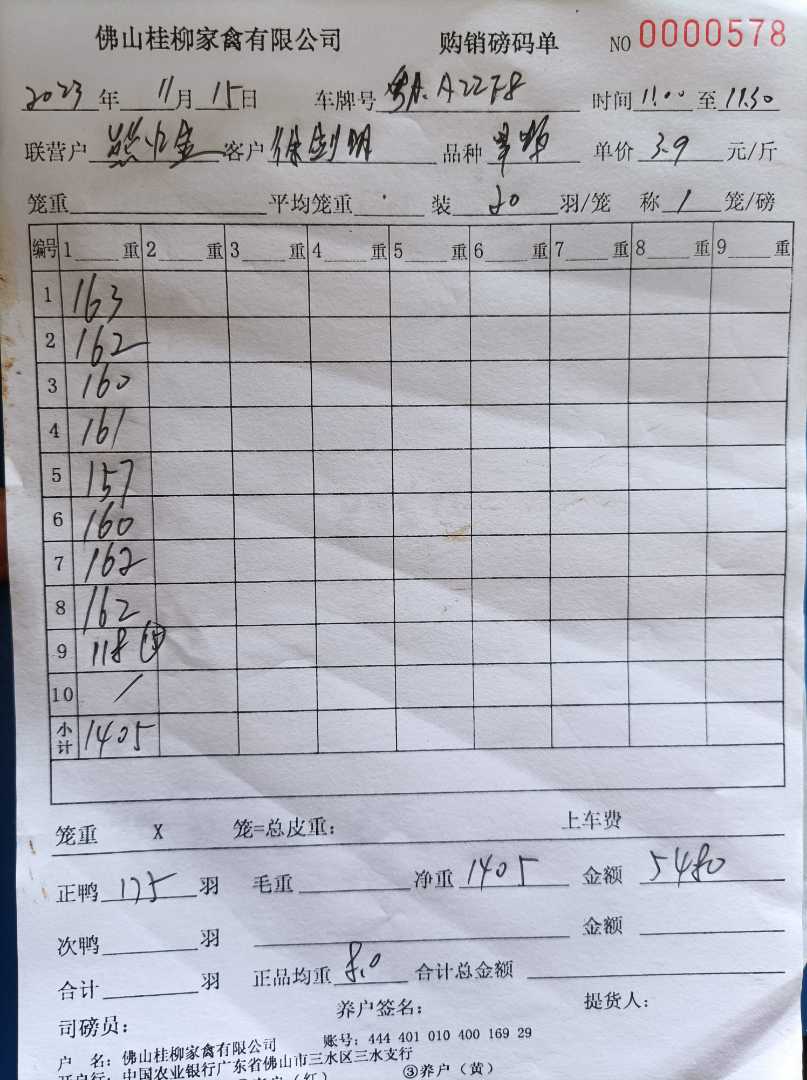 佛山桂柳家禽有限公司 购销磅码单 NO 0000578
2023年 11月 15日 车牌号 粤A.A22F8 时间 11.00 至 11.30
联营户 客户 徐剑明 品种 单价 3.9 元/斤
笼重 平均笼重 装 20 羽/笼 称 1 笼/磅
编号 1 重 2 重 3 重 4 重 5 重 6 重 7 重 8 重 9 重
1 163
2 162
3 160
4 161
5 157
6 160
7 162
8 162
9 118 (15)
10 /
小计 1405
笼重 X 笼=总皮重: 上车费
正鸭 175 羽 毛重 净重 1405 金额 5480
次鸭 羽 金额
合计 羽 正品均重 8.0 合计总金额
养户签名: 提货人:
司磅员:
户 名: 佛山桂柳家禽有限公司 账号: 444 401 010 400 169 29
开户行: 中国农业银行广东省佛山市三水区三水支行
(红) ③养户(黄)